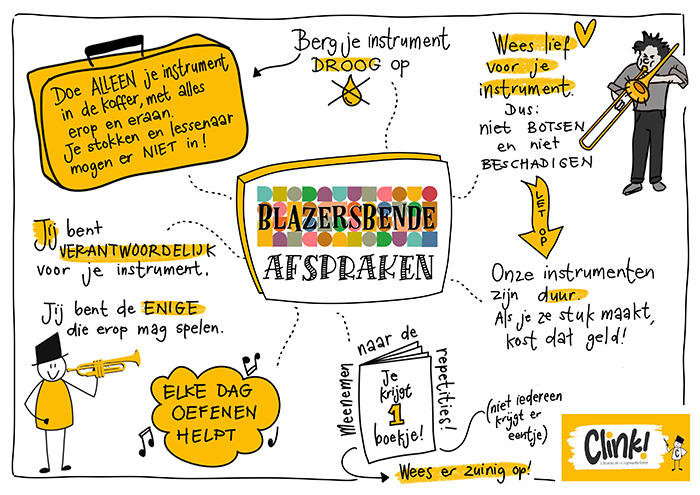 Doe ALLEEN je instrument
in de koffer, met alles
erop en eraan.
Je stokken en lessenaar
mogen er NIET in!
Berg je instrument
DROOG op
Wees lief
voor je
instrument.
Dus:
niet BOTSEN
en niet
BESCHADIGEN
LET OP
Onze instrumenten
zijn duur.
Als je ze stuk maakt,
kost dat geld!
BLAZERSBENDE
AFSPRAKEN
Jij bent
VERANTWOORDELIJK
voor je instrument.
Jij bent de ENIGE
die erop mag spelen.
ELKE DAG
OEFENEN
HELPT
Meenemen
naar de
repetities!
Je
krijgt
1
boekje!
(niet iedereen
krijgt er
eentje)
Wees er zuinig op!
Clink!